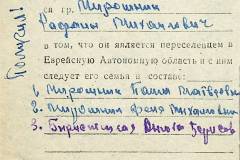 Получил!
ся гр. Мирошник
Рафаил Михайлович
в том, что он является переселенцем в
Еврейскую Автономную область и с ним
следует его семья в составе:
1. Мирошник Папа Матвеевна
2. Мирошник Феня Михайловна
3.